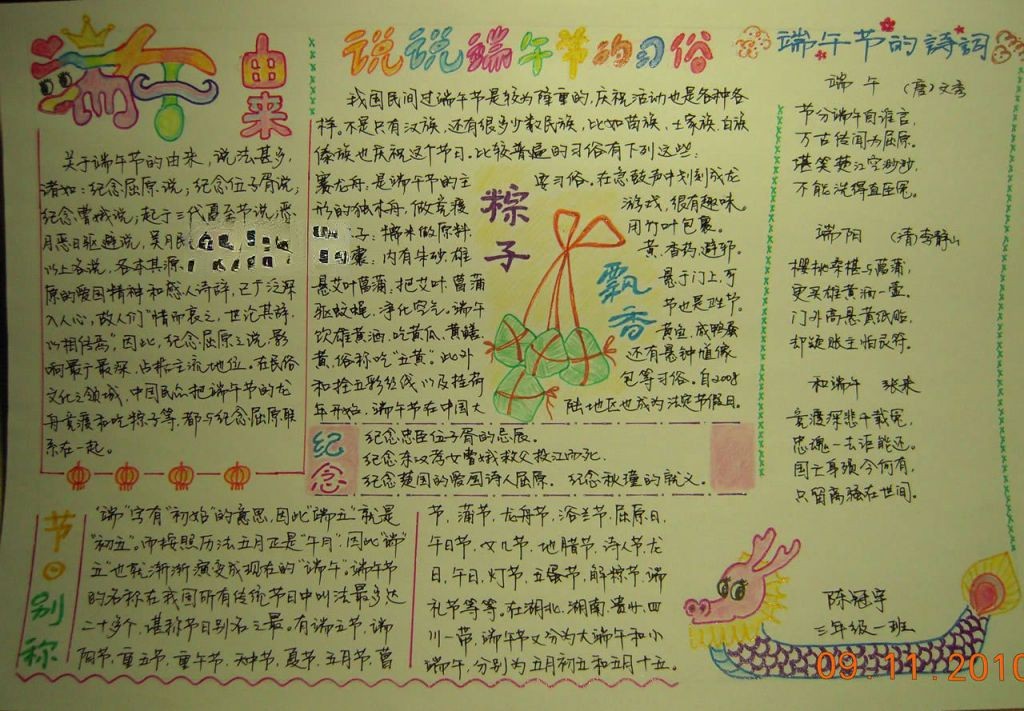 端午
由来
关于端午节的由来，说法甚多，
诸如：纪念屈原说；纪念伍子胥说；
纪念曹娥说；起于三代夏至节说；恶
月恶日驱避说，吴月民
以上各说，各本其源
原的爱国精神和感人诗辞，已广泛深
入人心，故人们“惜而哀之，世论其辞，
以相传焉”因此，纪念屈原之说，影
响最广最深，占据主流地位。在民俗
文化之领域，中国民众把端午节的龙
舟竞渡和吃粽子等，都与纪念屈原联
系在一起。
说说端午节的习俗
我国民间过端午节是较为隆重的，庆祝活动也是各种各
样。不是只有汉族，还有很多少数民族，比如苗族，土家族，白族
傣族也庆祝这个节日。比较普遍的习俗有下列这些：
赛龙舟，是端午节的主
要习俗，在急鼓声中划刻成龙
形的独木舟，做竞渡
游戏，很有趣味。
子：糯米的原料
用竹叶包裹。
囊：内有朱砂雄
黄，香药，避邪。
悬艾叶菖蒲，把艾叶菖蒲
悬于门上，可
驱蚊蝇，净化空气。端午
节也是卫生节。
饮雄黄酒，吃黄瓜、黄鳝
黄鱼，咸鸭蛋
黄，俗称吃“五黄”。此外
还有悬钟馗像
和拴五彩丝线以及挂荷
包等习俗。自2008
年开始，端午节在中国大
陆地区也成为法定节假日。
粽子
飘香
纪念
纪念忠臣伍子胥的忌辰。
纪念东汉孝女曹娥救父投江而死。
纪念楚国的爱国诗人屈原。 纪念秋瑾的就义。
节日别称
“端”字有“初始”的意思，因此“端五”就是
“初五”。而按照历法五月正是“午月”，因此“端
五”也就渐渐演变成现在的“端午”。端午节
的名称在我国所有传统节日中叫法最多达
二十多个，堪称节日别名之最。有端五节，端
阳节，重五节，重午节，天中节，夏节，五月节，菖
节，蒲节，龙舟节，浴兰节，屈原日，
午日节，女儿节，地腊节，诗人节，龙
日，午日，灯节，五蛋节，解粽节，端
礼节等等。在湖北，湖南，贵州，四
川一带，端午节又分为大端午和小
端午，分别为五月初五和五月十五。
端午节的詩詞
端 午 （唐）文秀
节分端午自谁言，
万古传闻为屈原。
堪笑楚江空渺渺，
不能洗得直臣冤。
端阳 （清）李静山
樱桃桑椹与菖蒲，
更买雄黄酒一壶。
门外高悬黄纸贴，
却疑账主怕灵符。
和端午 张耒
竞渡深悲千载冤，
忠魂一去讵能还。
国亡身殒今何有，
只留离骚在世间。
陈冠宇
三年级一班
09.11.2010